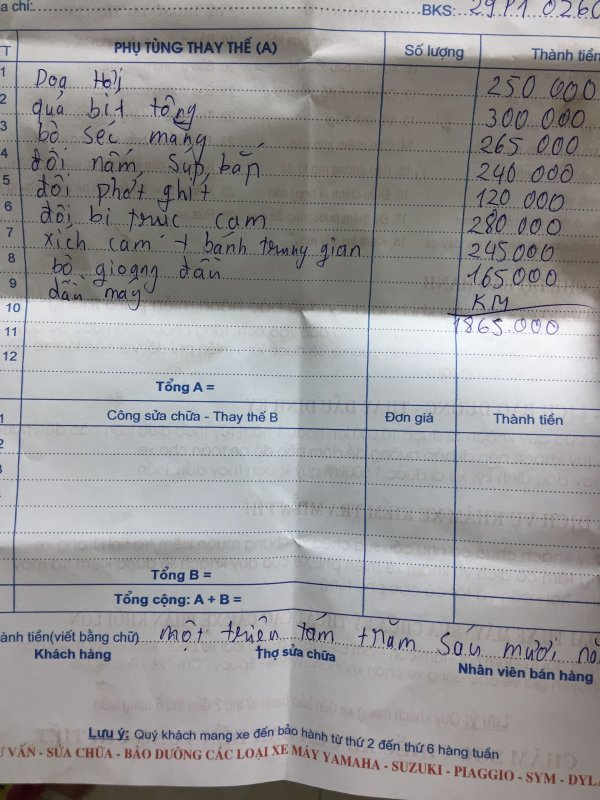 a chỉ: BKS: 29P1 0260
T PHỤ TÙNG THAY THẾ (A) Số lượng Thành tiền
1 Doa Hơi 250 000
2 quả bít tông 300 000
3 bộ séc măng 265 000
4 đôi nấm, súp, bắp 240 000
5 đôi phớt ghít 120 000
6 đôi bi trục cam 280 000
7 xích cam + bánh trung gian 245.000
8 bộ gioang dầu 165.000
9 dầu máy KM
10 1865.000
11
12
Tổng A =
1 Công sửa chữa - Thay thế B Đơn giá Thành tiền
2
3
Tổng B =
Tổng cộng: A + B =
ành tiền(viết bằng chữ) một triệu tám trăm sáu mươi
Khách hàng Thợ sửa chữa Nhân viên bán hàng
Lưu ý: Quý khách mang xe đến bảo hành từ thứ 2 đến thứ 6 hàng tuần
Ư VẤN - SỬA CHỮA - BẢO DƯỠNG CÁC LOẠI XE MÁY YAMAHA - SUZUKI - PIAGGIO - SYM - DYL